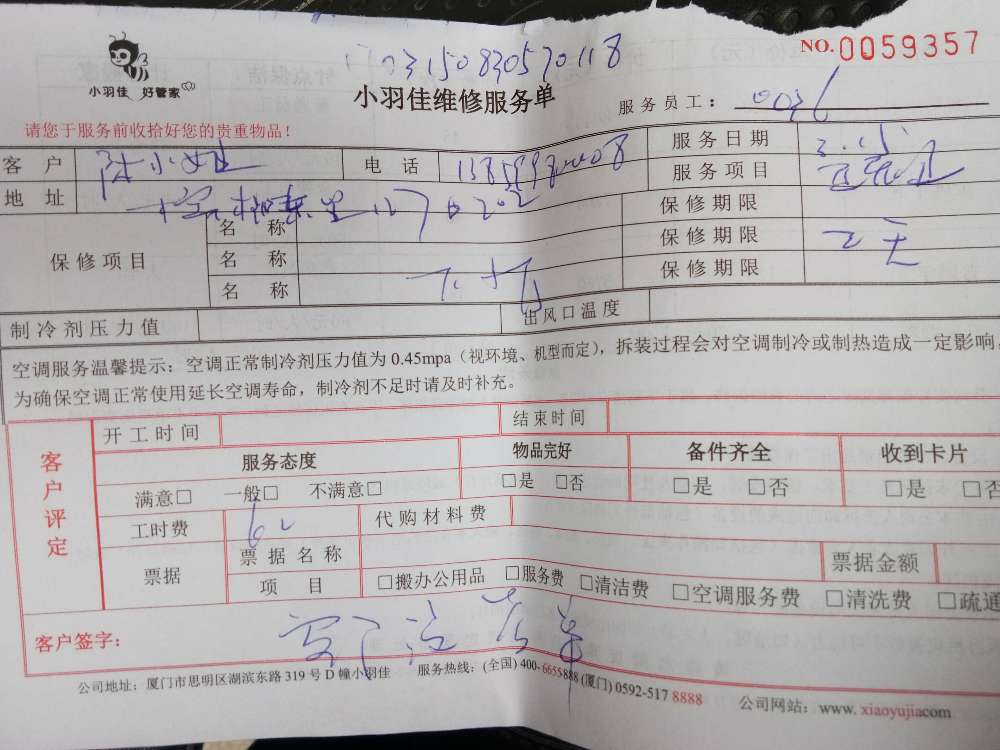 NO.0059357
03150830570118
小羽佳 好管家
小羽佳维修服务单
服务员工： 0036
请您于服务前收拾好您的贵重物品！
客 户 小姐 电 话 服务日期
服务项目
地 址 保修期限
保修项目 名 称
名 称 保修期限 天
名 称 保修期限
制冷剂压力值 出风口温度
空调服务温馨提示：空调正常制冷剂压力值为 0.45mpa（视环境、机型而定），拆装过程会对空调制冷或制热造成一定影响，
为确保空调正常使用延长空调寿命，制冷剂不足时请及时补充。
客户评定
开工时间 结束时间
服务态度 物品完好 备件齐全 收到卡片
满意□ 一般□ 不满意□ □是 □否 □是 □否 □是 □否
工时费 60 代购材料费
票据 票据名称 票据金额
项 目 □搬办公用品 □服务费 □清洁费 □空调服务费 □清洗费 □疏通
客户签字：
公司地址：厦门市思明区湖滨东路 319 号 D 幢小羽佳 服务热线：(全国) 400-6655888 (厦门) 0592-517 8888 公司网站：www. xiaoyujiacom